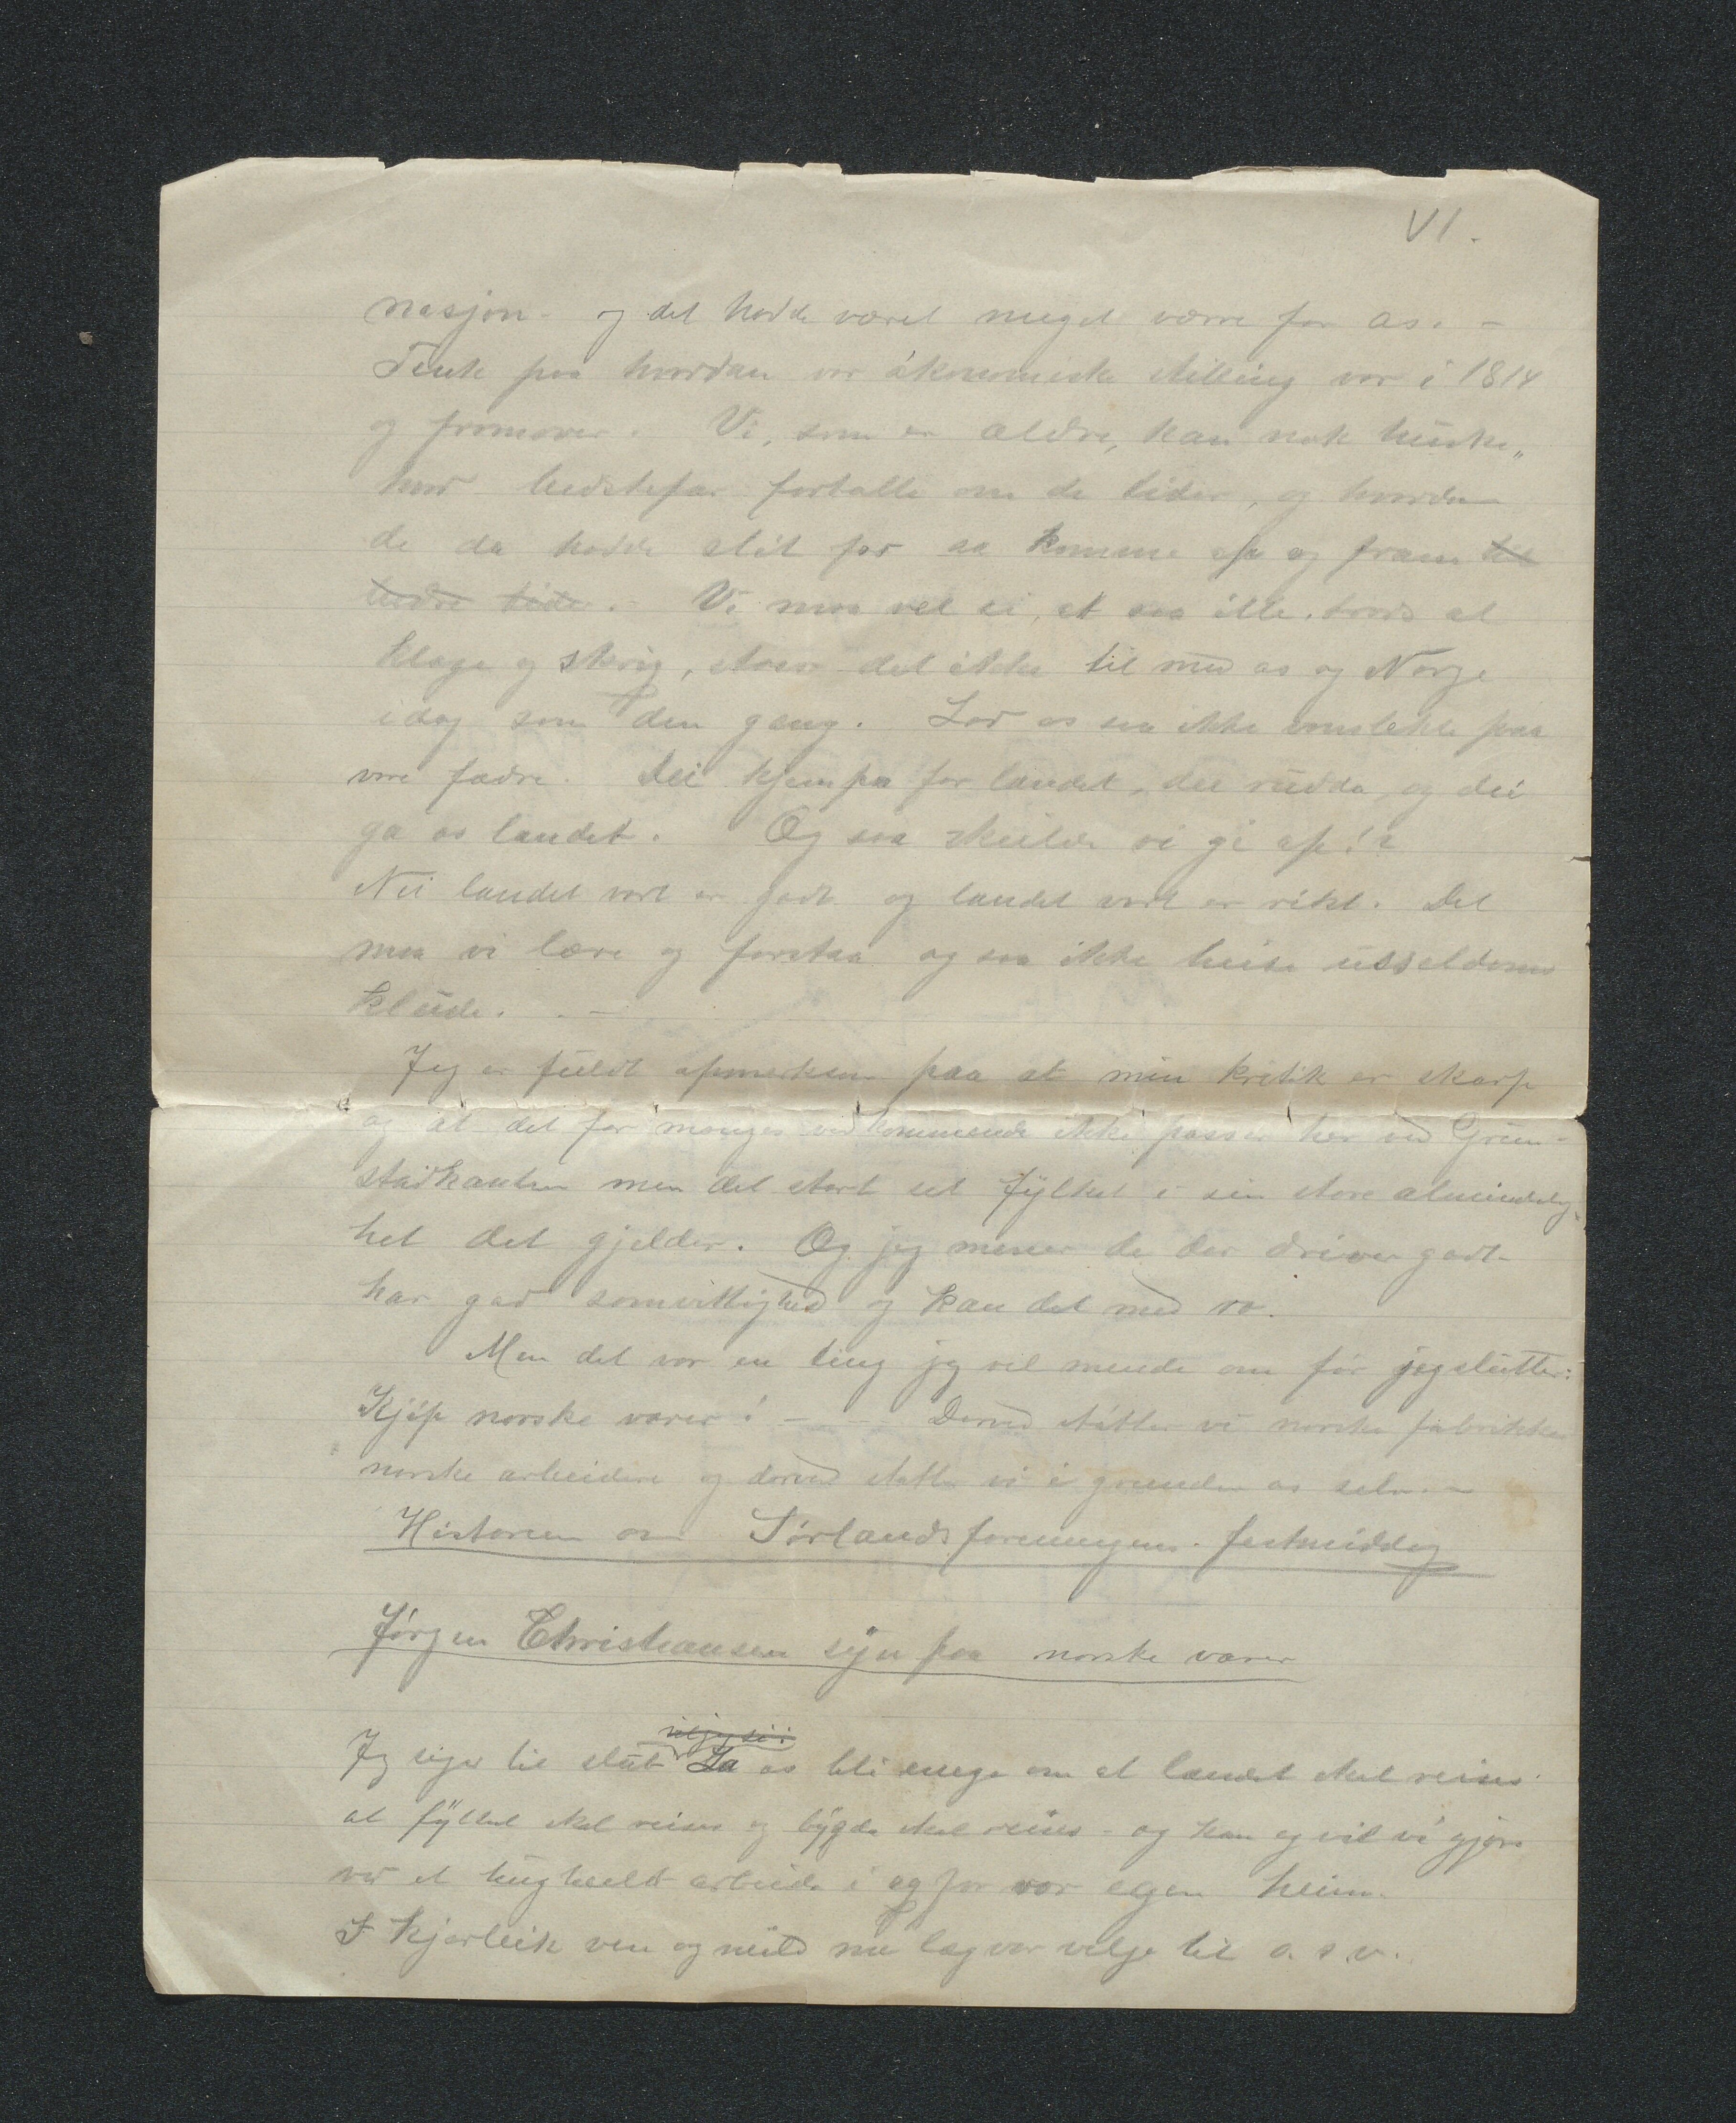 VI.
nasjon - og det hadde været meget værre for os. -
Tenk paa hvordan vor økonomiske stilling var i 1814
og fremover. Vi, som er ældre, kan nok huske,
hvad bedstefar fortalte om de tider, og hvordan
de da hadde slit for aa komme op og fram til
bedre tider. - Vi maa vel si, at saa ille, trods al
klage og skrig, staar det ikke til med os og Norge
idag som den gang. Lad os saa ikke vanslekte paa
vore fædre. Dei kjempa for landet, dei rudda, og dei
ga os landet. Og saa skulde vi gi op!?
Nei landet vort er godt og landet vort er rikt. Det
maa vi lære og forstaa og saa ikke heise usseldoms
klude. . -
Jeg er fuldt opmerksom paa at min kritik er skarp
og at det for manges vedkommende ikke passer her ved Grim-
stadkanten men det stort set fylket i sin store almindelig-
het det gjelder. Og jeg mener de der driver godt
har god samvittighed og kan det med ro.
Men det var en ting jeg vil minde om før jeg slutter:
Kjøp norske varer! - - Derved støtter vi norske fabrikker
norske arbeidere og derved støtter vi i grunden os selv. -
Historien om Sørlandsforeningens festmiddag
Jørgen Christiansen syn paa norske varer
vil jeg si:
Jeg siger til slut La os bli enige om at landet skal reises
at fylket skal reises og bygda skal reises - og kan og vil vi gjøre
ved et hugheilt arbeide i og for vor egen heim.
I kjærleik ven og mild me leg vor velje til o. s. v.